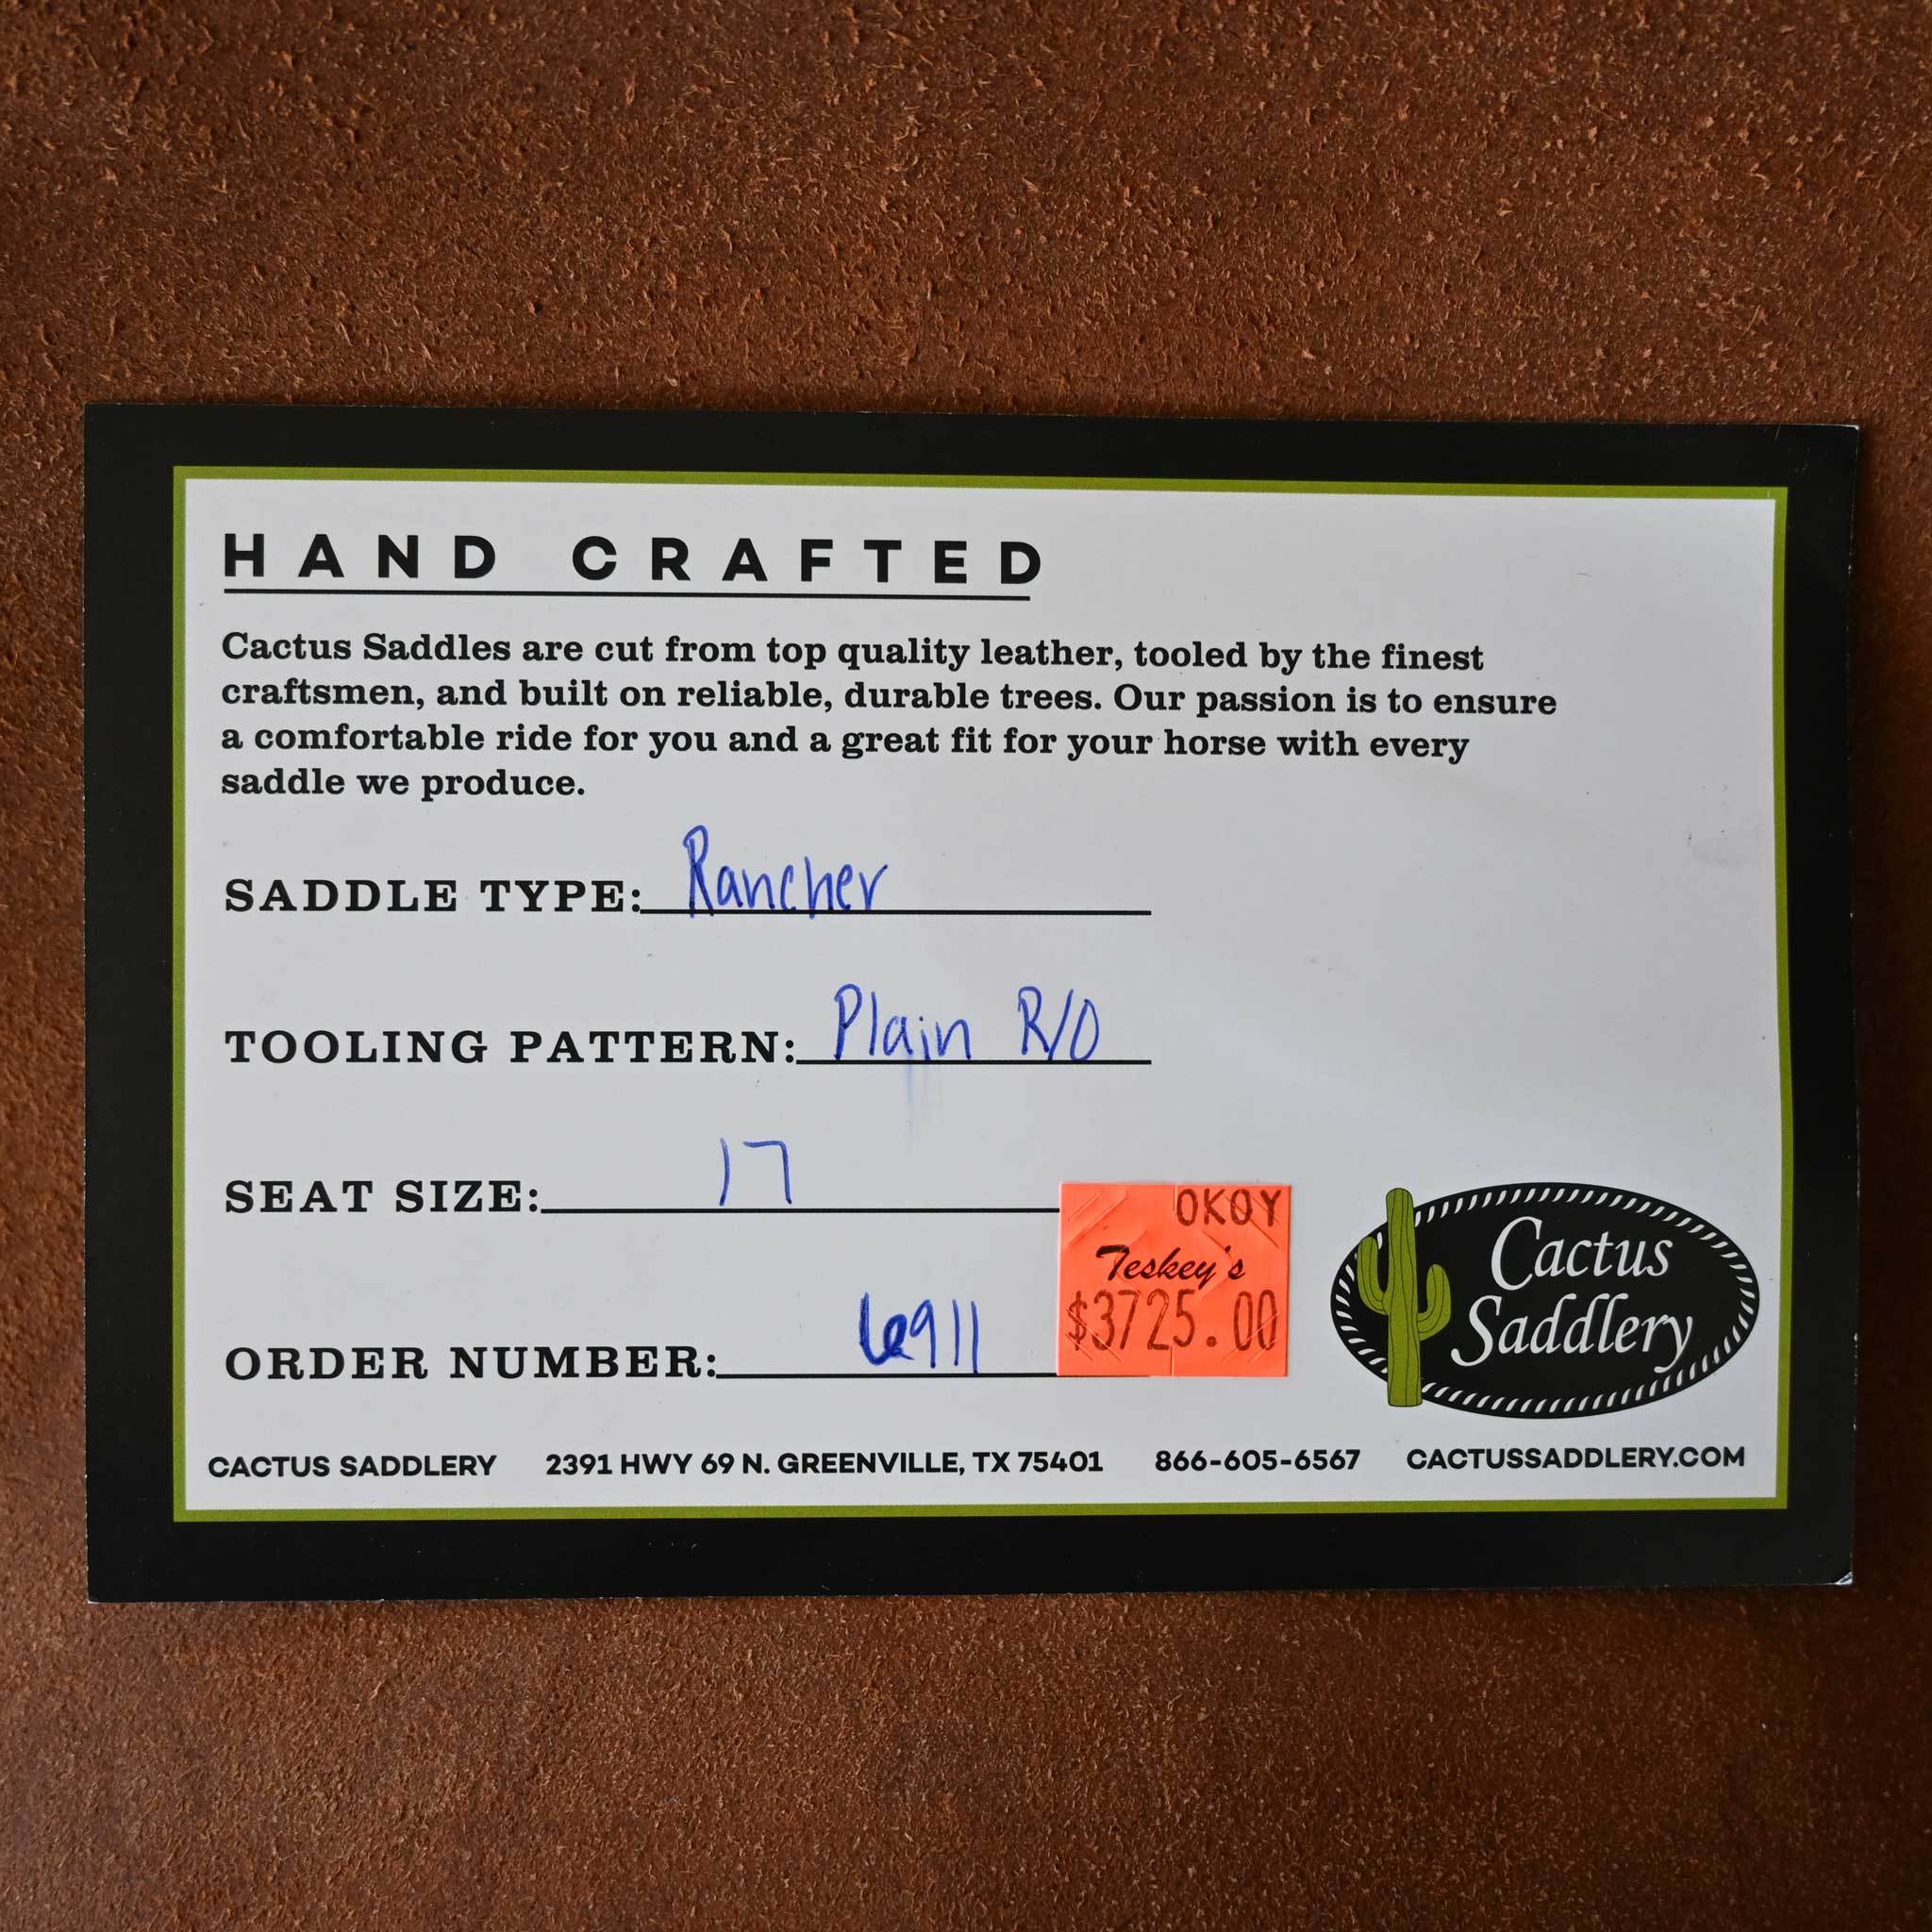 HAND CRAFTED
Cactus Saddles are cut from top quality leather, tooled by the finest
craftsmen, and built on reliable, durable trees. Our passion is to ensure
a comfortable ride for you and a great fit for your horse with every
saddle we produce.
SADDLE TYPE: Rancher
TOOLING PATTERN: Plain R/O
SEAT SIZE: 17
ORDER NUMBER: 6911
OK0Y
Teskey's
$3725.00
Cactus
Saddlery
CACTUS SADDLERY 2391 HWY 69 N. GREENVILLE, TX 75401 866-605-6567 CACTUSSADDLERY.COM